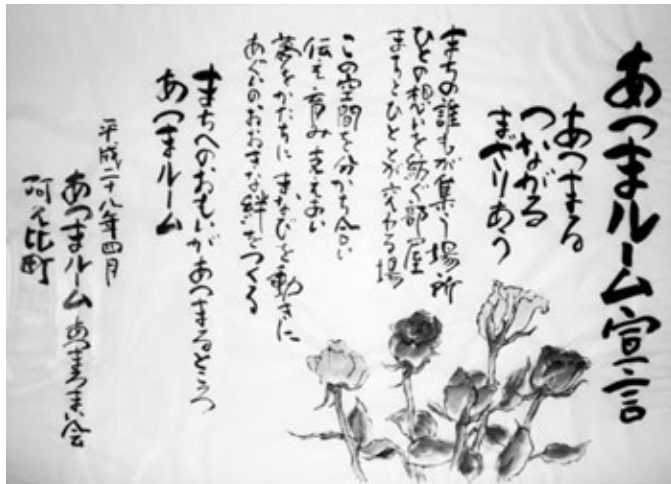 あつまルーム宣言
あつまる
つながる
まざりあう
まちの誰もが集う場所
ひとの想いを紡ぐ部屋
まちとひととが交わる場
この空間を分かち合い
伝え育み支えあい
夢をかたちに まなびを動きに
あぐいのおおきな絆をつくる
まちへのおもいがあつまるところ
あつまルーム
平成二十八年四月
あつまルーム
阿久比町